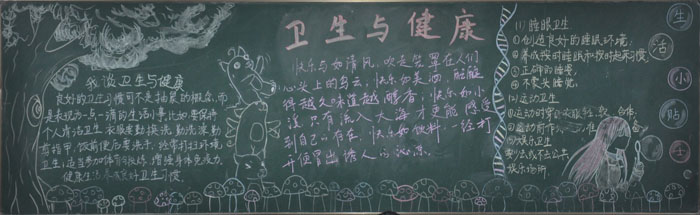 卫生与健康
我谈卫生与健康
良好的卫生习惯可不是抽象的概念,而
是表现为一点一滴的生活小事,比如要保持
个人清洁卫生 衣服要勤换洗 勤洗澡勤
剪指甲,饭前便后要洗手,经常打扫环境
卫生,适当参加体育锻炼,增强身体免疫力
健康生活 养成良好卫生习惯。
快乐与如清风,吹走笼罩在人们
心头上的乌云,快乐如美酒,酝酿
得越久味道越醇香,快乐如小
溪 只有流入大海才更能感受
到自己的存在,快乐如饮料,一经打
开便冒出诱人的沁凉。
(1)睡眠卫生
①创造良好的睡眠环境:
②养成按时睡眠和按时起床习惯;
③正确的睡姿;
④不蒙头睡觉;
(2)运动卫生
①运动时穿的衣服轻、合体
②运动前作准备
(3)娱乐卫生
要少去或不去公共
娱乐场所
生
活
小
贴
士